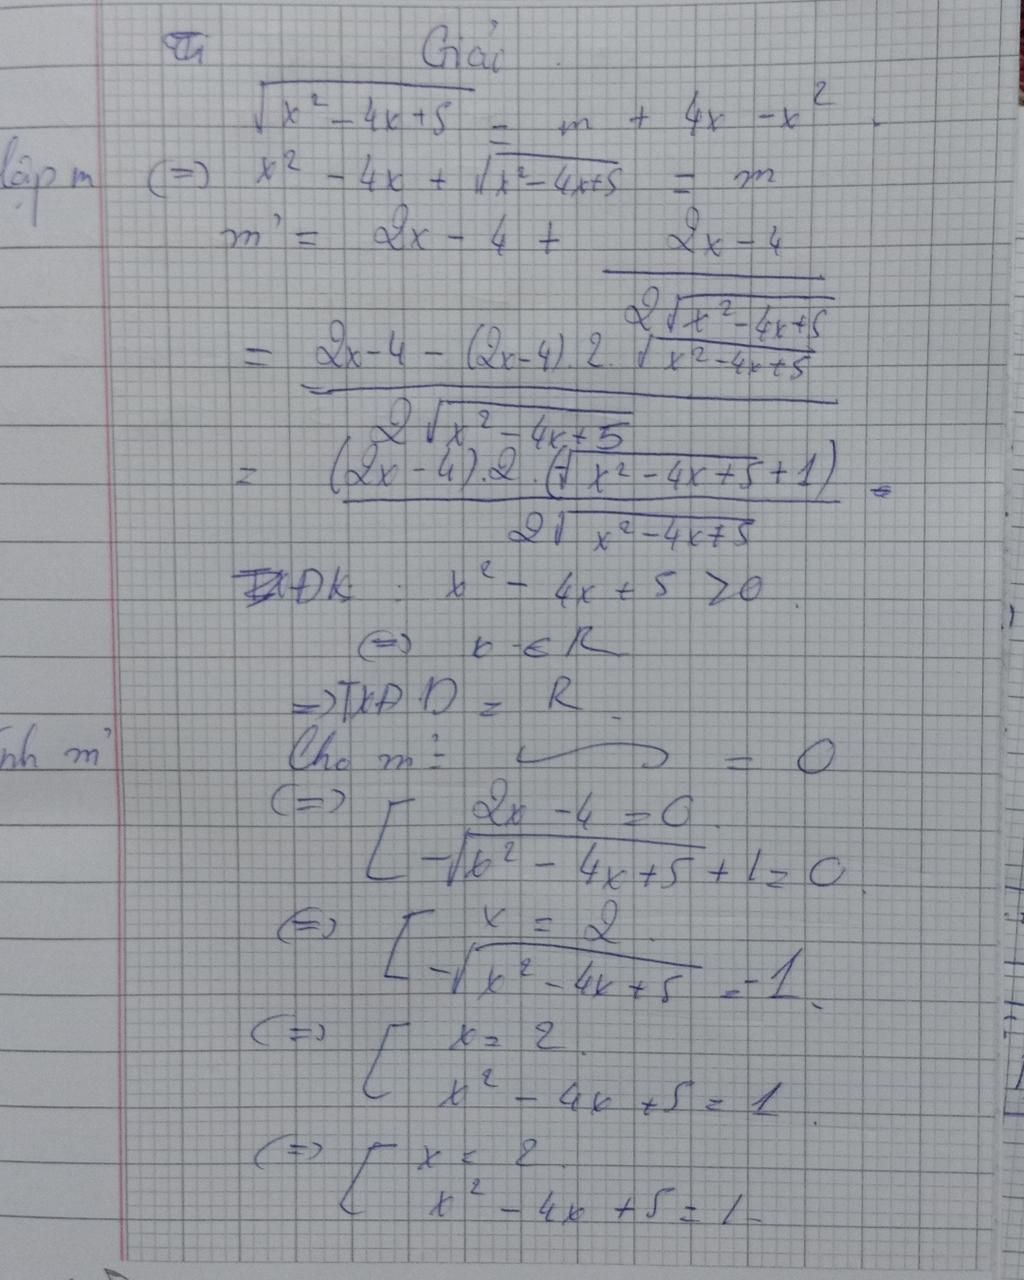 Giải
√(x² - 4x + 5) = m + 4x - x².
lập m (=) x² - 4x + √(x² - 4x + 5) = m
m' = 2x - 4 + (2x - 4)/(2√(x² - 4x + 5))
= (2x - 4 - (2x - 4).2.√(x² - 4x + 5))/(2√(x² - 4x + 5))
= ((2x - 4).2.(-√(x² - 4x + 5) + 1))/(2√(x² - 4x + 5)) =
ĐK : x² - 4x + 5 > 0.
(=) x ∈ R
=> TXĐ D = R.
m' Cho m' = ⏜ = 0
(=) [ 2x - 4 = 0.
-√(x² - 4x + 5) + 1 = 0.
(=) [ x = 2.
-√(x² - 4x + 5) = -1.
(=) [ x = 2.
x² - 4x + 5 = 1.
(=) [ x = 2.
x² - 4x + 5 = 1.